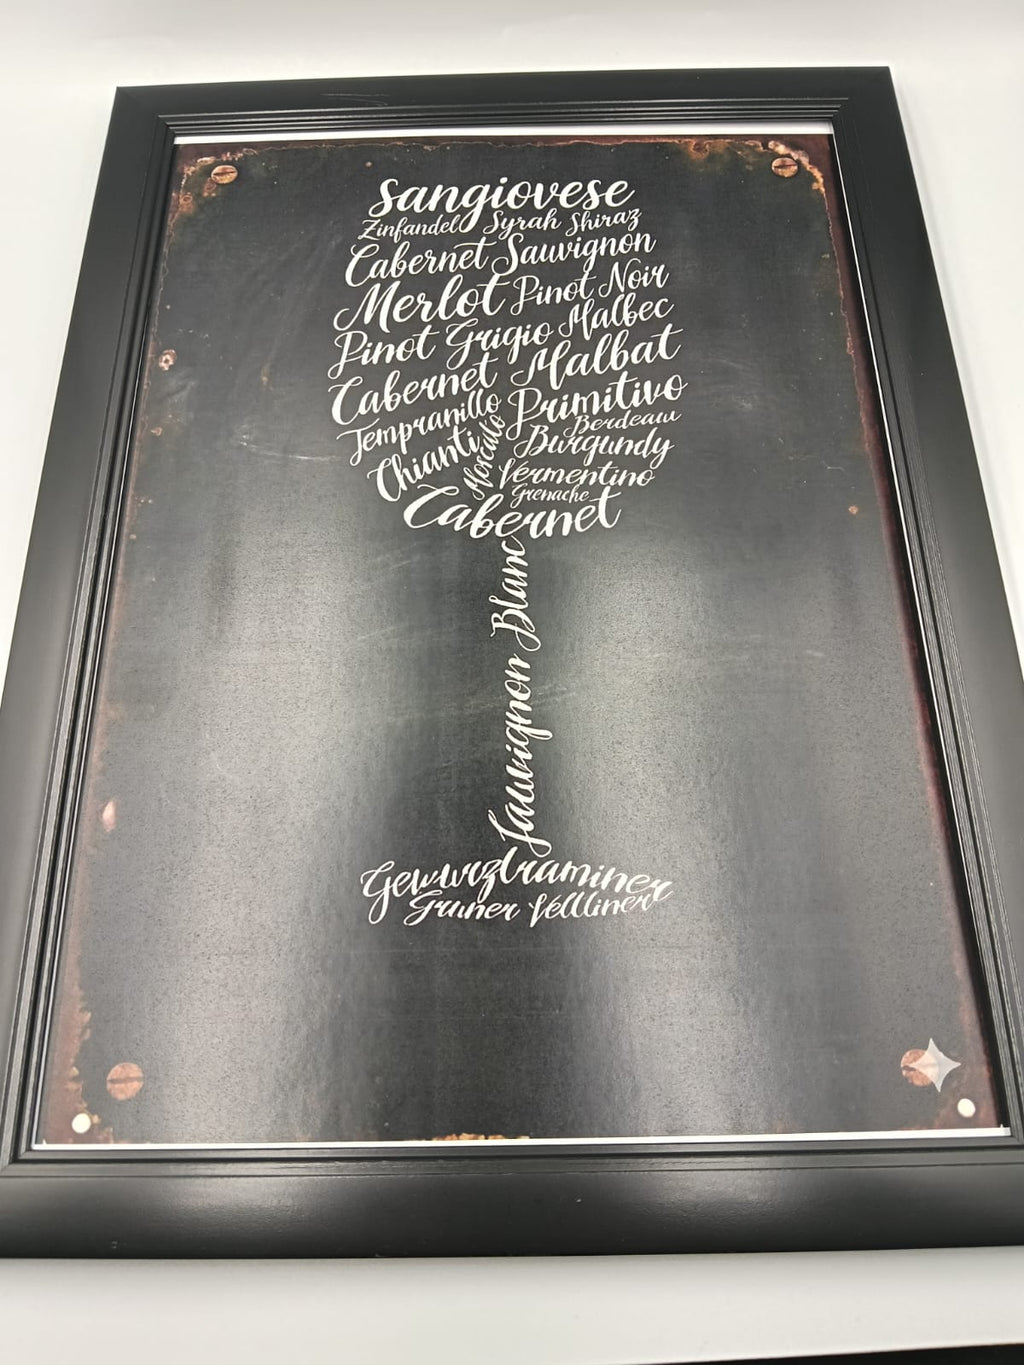 Sangiovese
Zinfandel Syrah Shiraz
Cabernet Sauvignon
Merlot Pinot Noir
Pinot Grigio Malbec
Cabernet Malbat
Tempranillo Primitivo
Berdeaux
Chianti Moscato Burgundy
Vermentino
Grenache
Cabernet
Sauvignon Blanc
Gewurztraminer
Gruner Veltliner